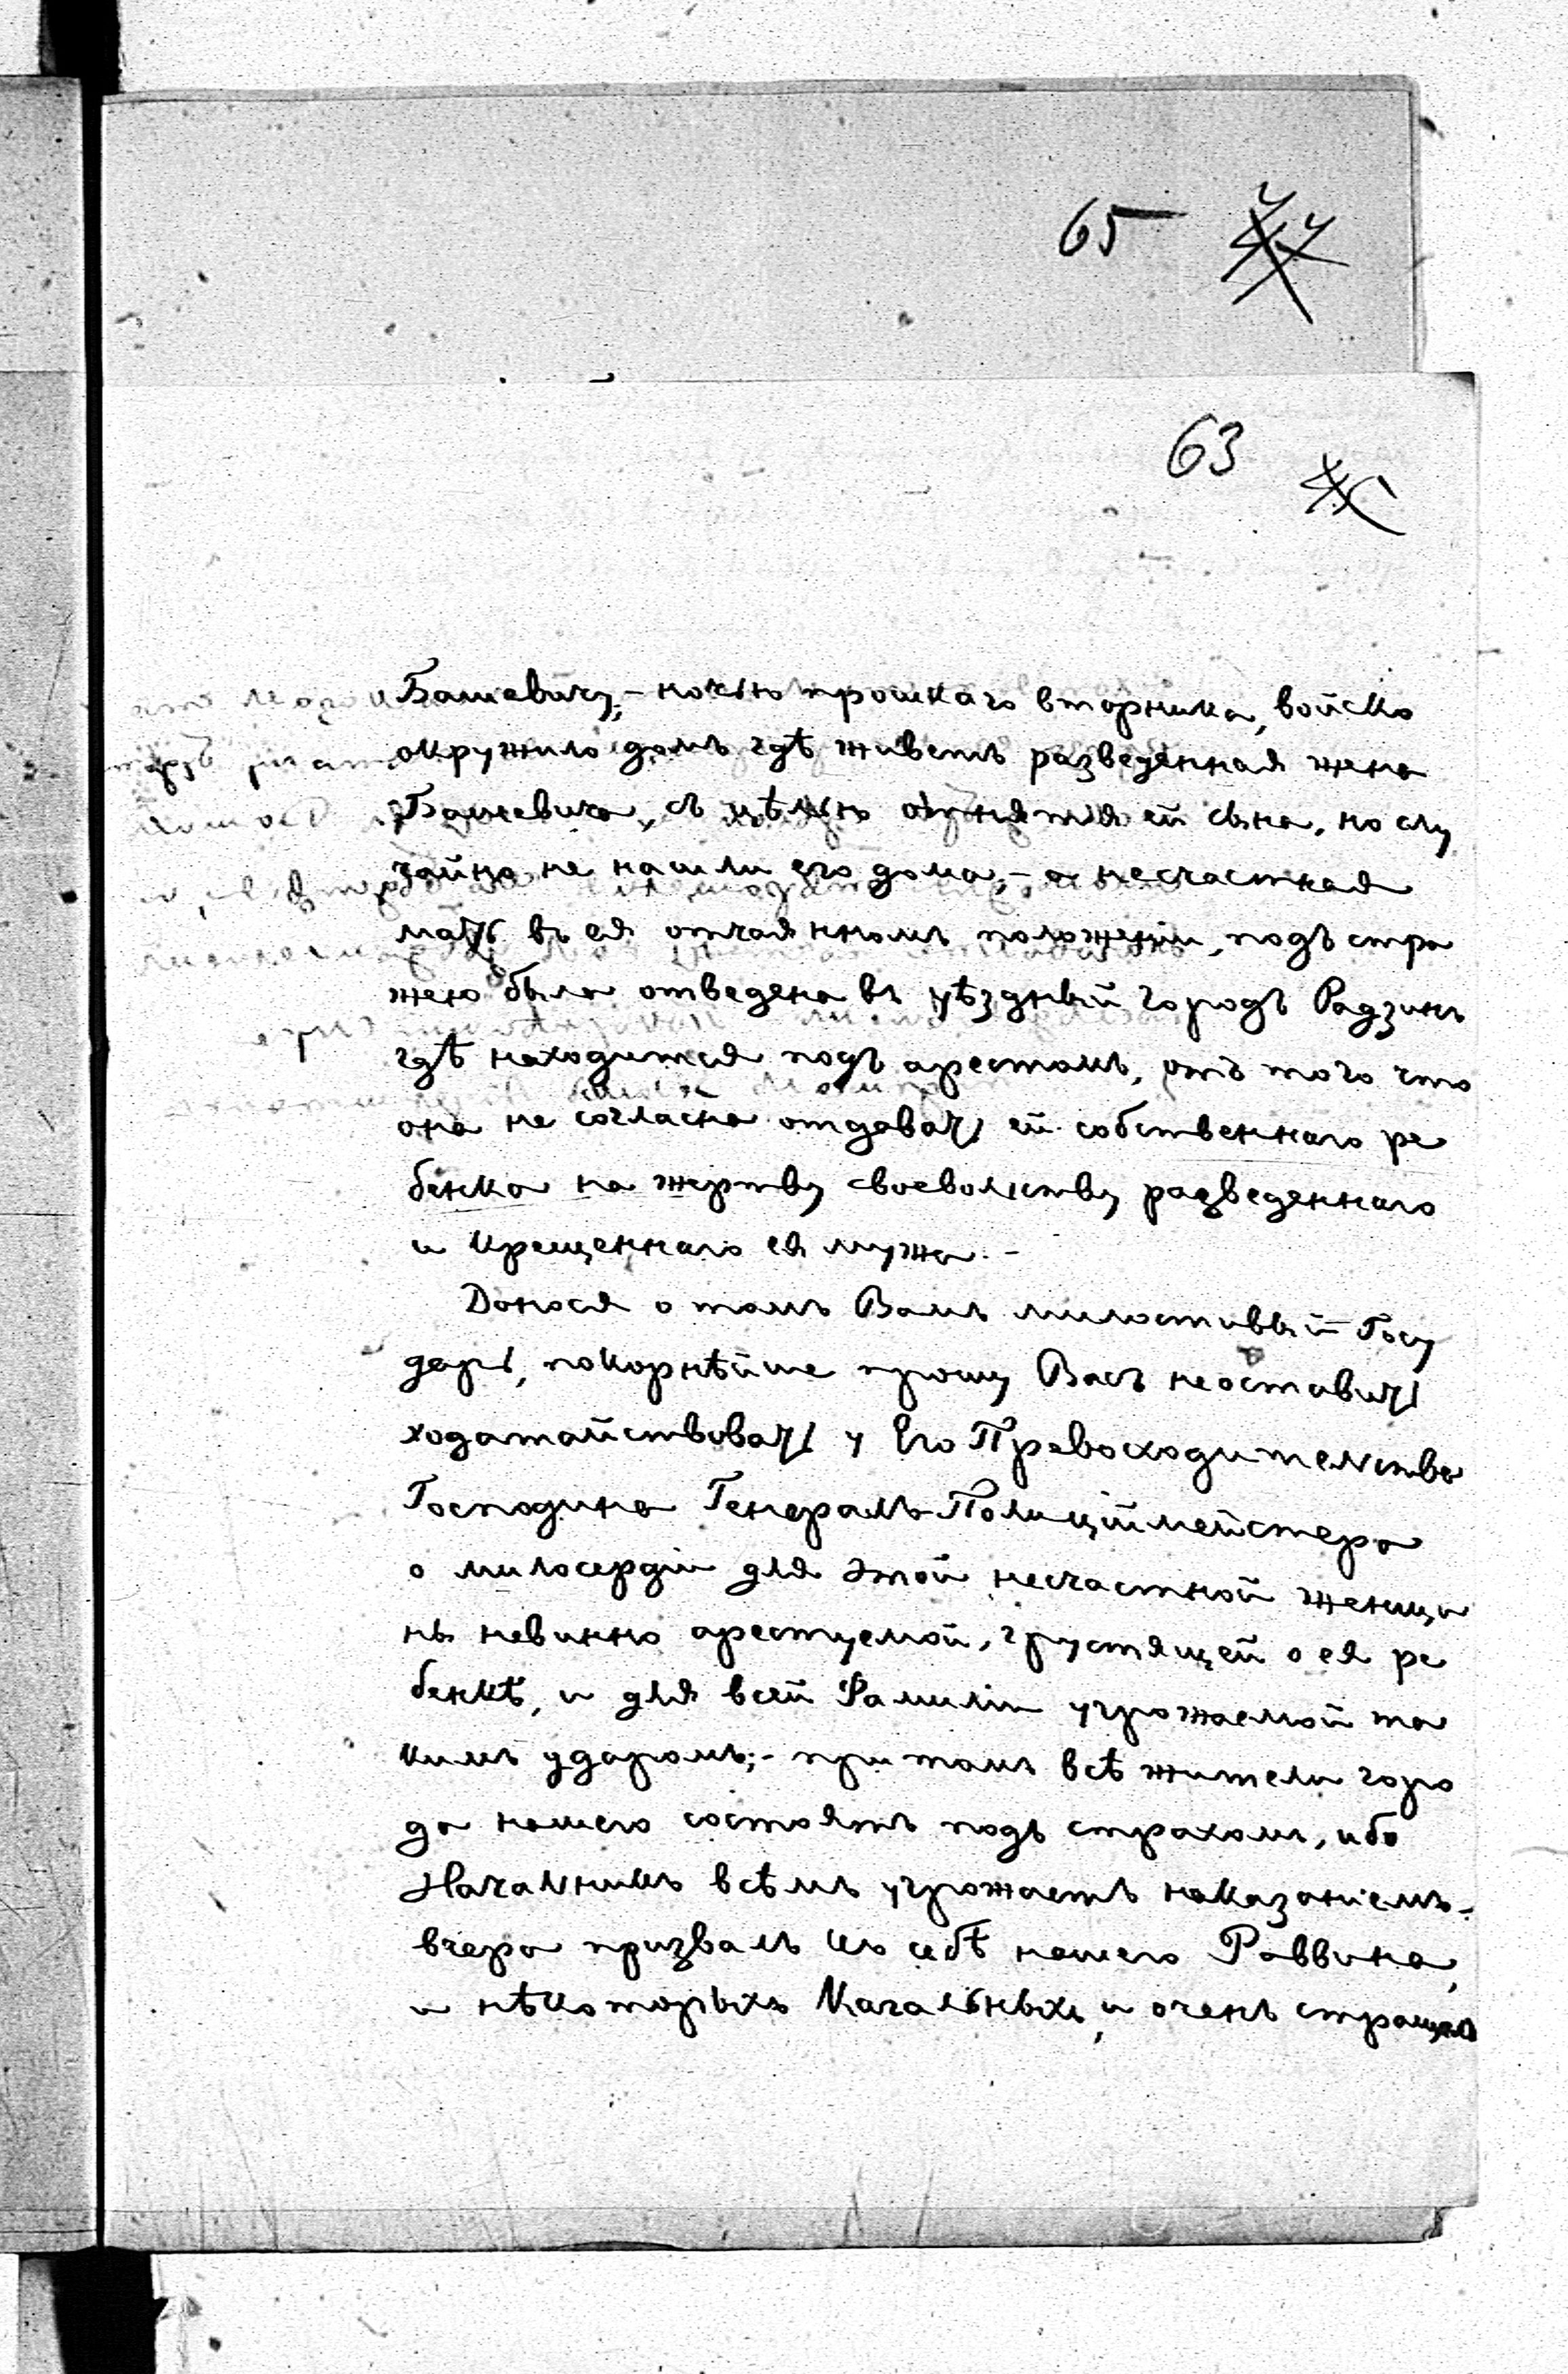 65
63
Башевичу;- ночью прошлаго вторника, войско
окружило домъ гдѣ живетъ разведенная жена
Башевича, съ цѣлью отнятія ей сына, но слу
чайно не нашли его дома,- а несчастная
мать въ ея отчаянномъ положеніи, подъ стра
жею была отведена въ уѣздный городъ Радзинъ
гдѣ находится подъ арестомъ, отъ того что
она не согласна отдавать ей собственнаго ре
бенка на жертву своевольству разведеннаго
и крещеннаго ея мужа.-
Донося о томъ Вамъ милостивый Госу
дарь, покорнѣйше прошу Васъ неоставить
ходатайствовать у Его Превосходительства
Господина Генералъ-Полиціймейстера
о милосердіи для этой несчастной женщи
ны невинно арестуемой, грустящей о ея ре
бенкѣ, и для всей Фамиліи угрожаемой та
кимъ ударомъ;- при томъ всѣ жители горо
да нашего состоятъ подъ страхомъ, ибо
Начальникъ всѣмъ угрожаетъ наказаніемъ.-
вчера призвалъ къ себѣ нашего Раввина,
и нѣкоторыхъ Кагальныхъ, и очень стращалъ